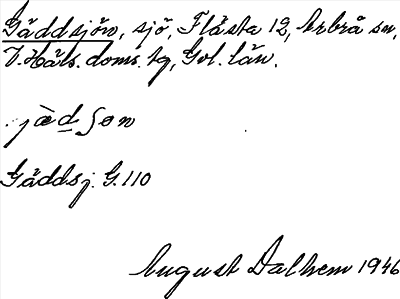 Gäddsjön, sjö, Flästa 12, Arbrå sn,
V. Häls. doms. tg, Gvl. län.
jäd̲ʃon
Gäddsj. G. 110
August Dalhem 1946